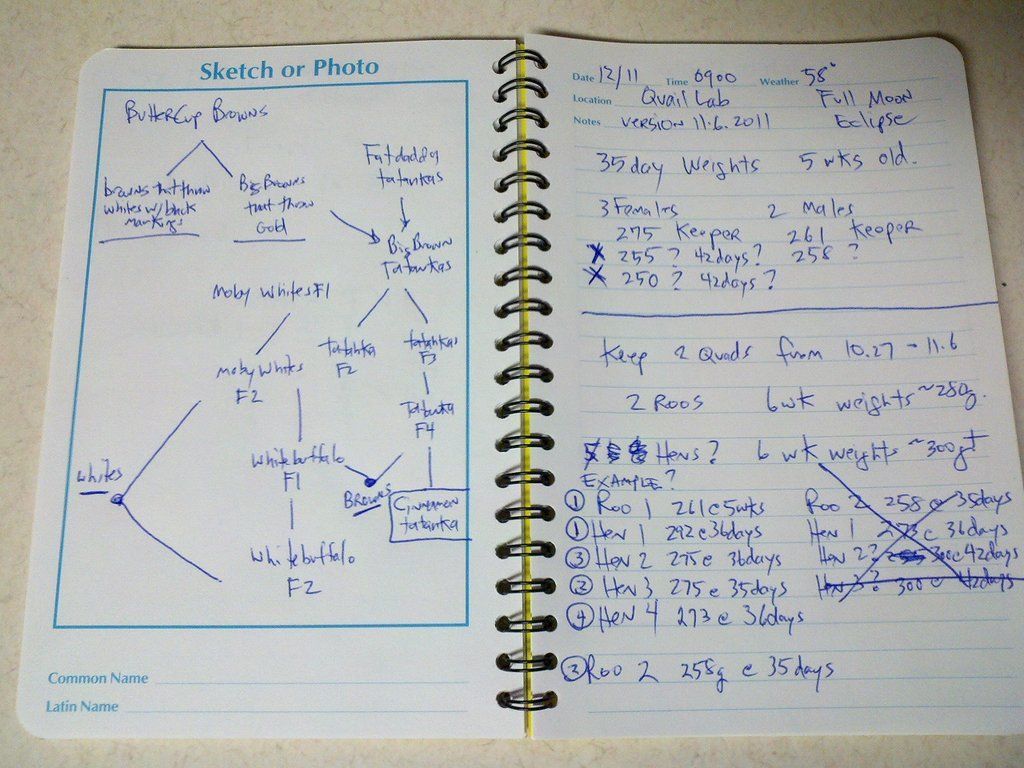 Sketch or Photo
Buttercup Browns
browns that throw
whites w/ black
markings
Big Browns
that throw
Gold
Fatdaddy
tatankas
Big Brown
Tatankas
Moby Whites F1
Tatanka
F2
tatankas
F3
Moby Whites
F2
Tatanka
F4
whitebuffalo
F1
whites
Browns
Cinnamon
tatanka
whitebuffalo
F2
Common Name
Latin Name
Date 12/11 Time 0900 Weather 58°
Location Quail Lab Full Moon
Notes Version 11.6.2011 Eclipse
35 day Weights 5 wks old.
3 Females 2 Males
275 Keeper 261 Keeper
X 255 ? 42days? 258 ?
X 250 ? 42days?
Keep 2 Quads from 10.27 - 11.6
2 Roos 6wk weights ~280g.
Hens? 6 wk weights ~300g+
Example?
1 Roo 1 261@5wks Roo 2 258@35days
1 Hen 1 292@36days Hen 1 273@36days
3 Hen 2 275@36days Hen 2? 300@42days
2 Hen 3 275@35days Hen 3? 300@42days
4 Hen 4 273@36days
3 Roo 2 258g@35days